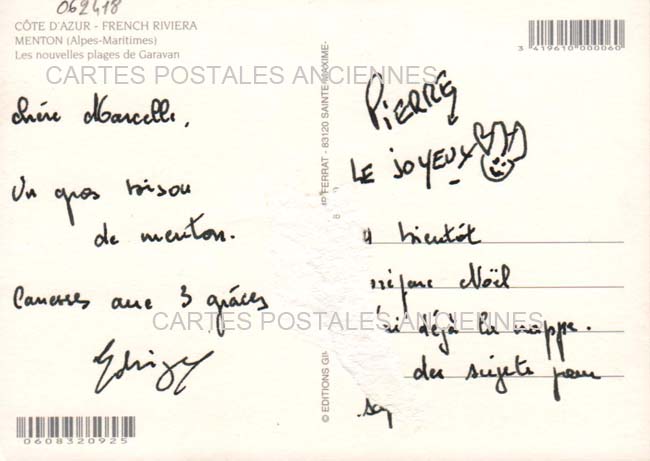 062418
CÔTE D'AZUR - FRENCH RIVIERA
MENTON (Alpes-Maritimes)
Les nouvelles plages de Garavan
3 419610 000060
CARTES POSTALES ANCIENNES
Chère Marcelle,
Un gros bisou
de menton.
Caresses aux 3 grâces
PIERRE
LE JOYEUX
à bientôt
prépare Noël
j'ai déjà la nappe.
des sujets pour
CARTES POSTALES ANCIENNES
© EDITIONS GI
FERRAT - 83120 SAINTE-MAXIME
0608320925